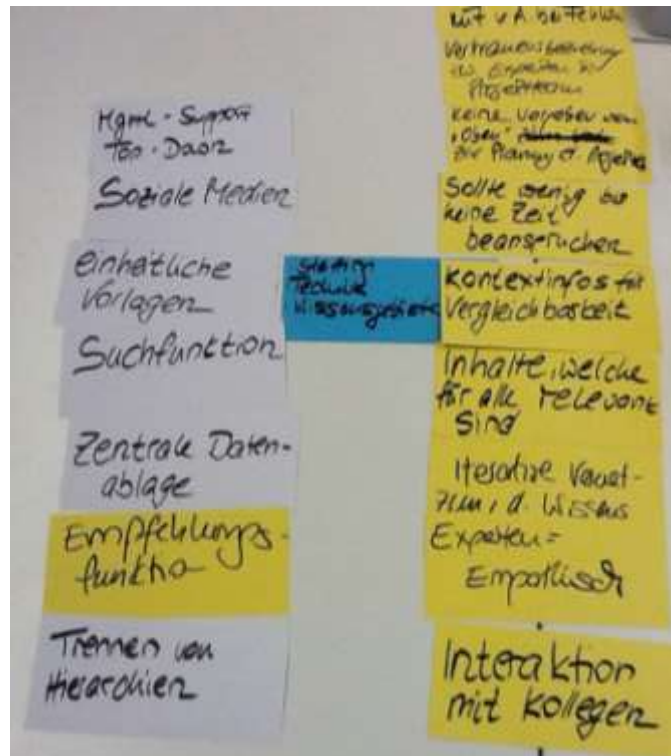 Mgmt - Support
Top - Down
Soziale Medien
einheitliche
Vorlagen
Suchfunktion
Zentrale Daten-
ablage
Empfehlungs-
funktion
Trennen von
Hierarchien
Technik
Wissensgebiete
mit v.A. bei Fehlern
Experten
Projektteam
keine Vorgaben von
"Oben"
Sollte wenig bis
keine Zeit
beanspruchen
Kontextinfos für
Vergleichbarkeit
Inhalte, welche
für alle relevant
sind
Iterative
d. Wissens
Experten =
Empathisch
Interaktion
mit Kollegen